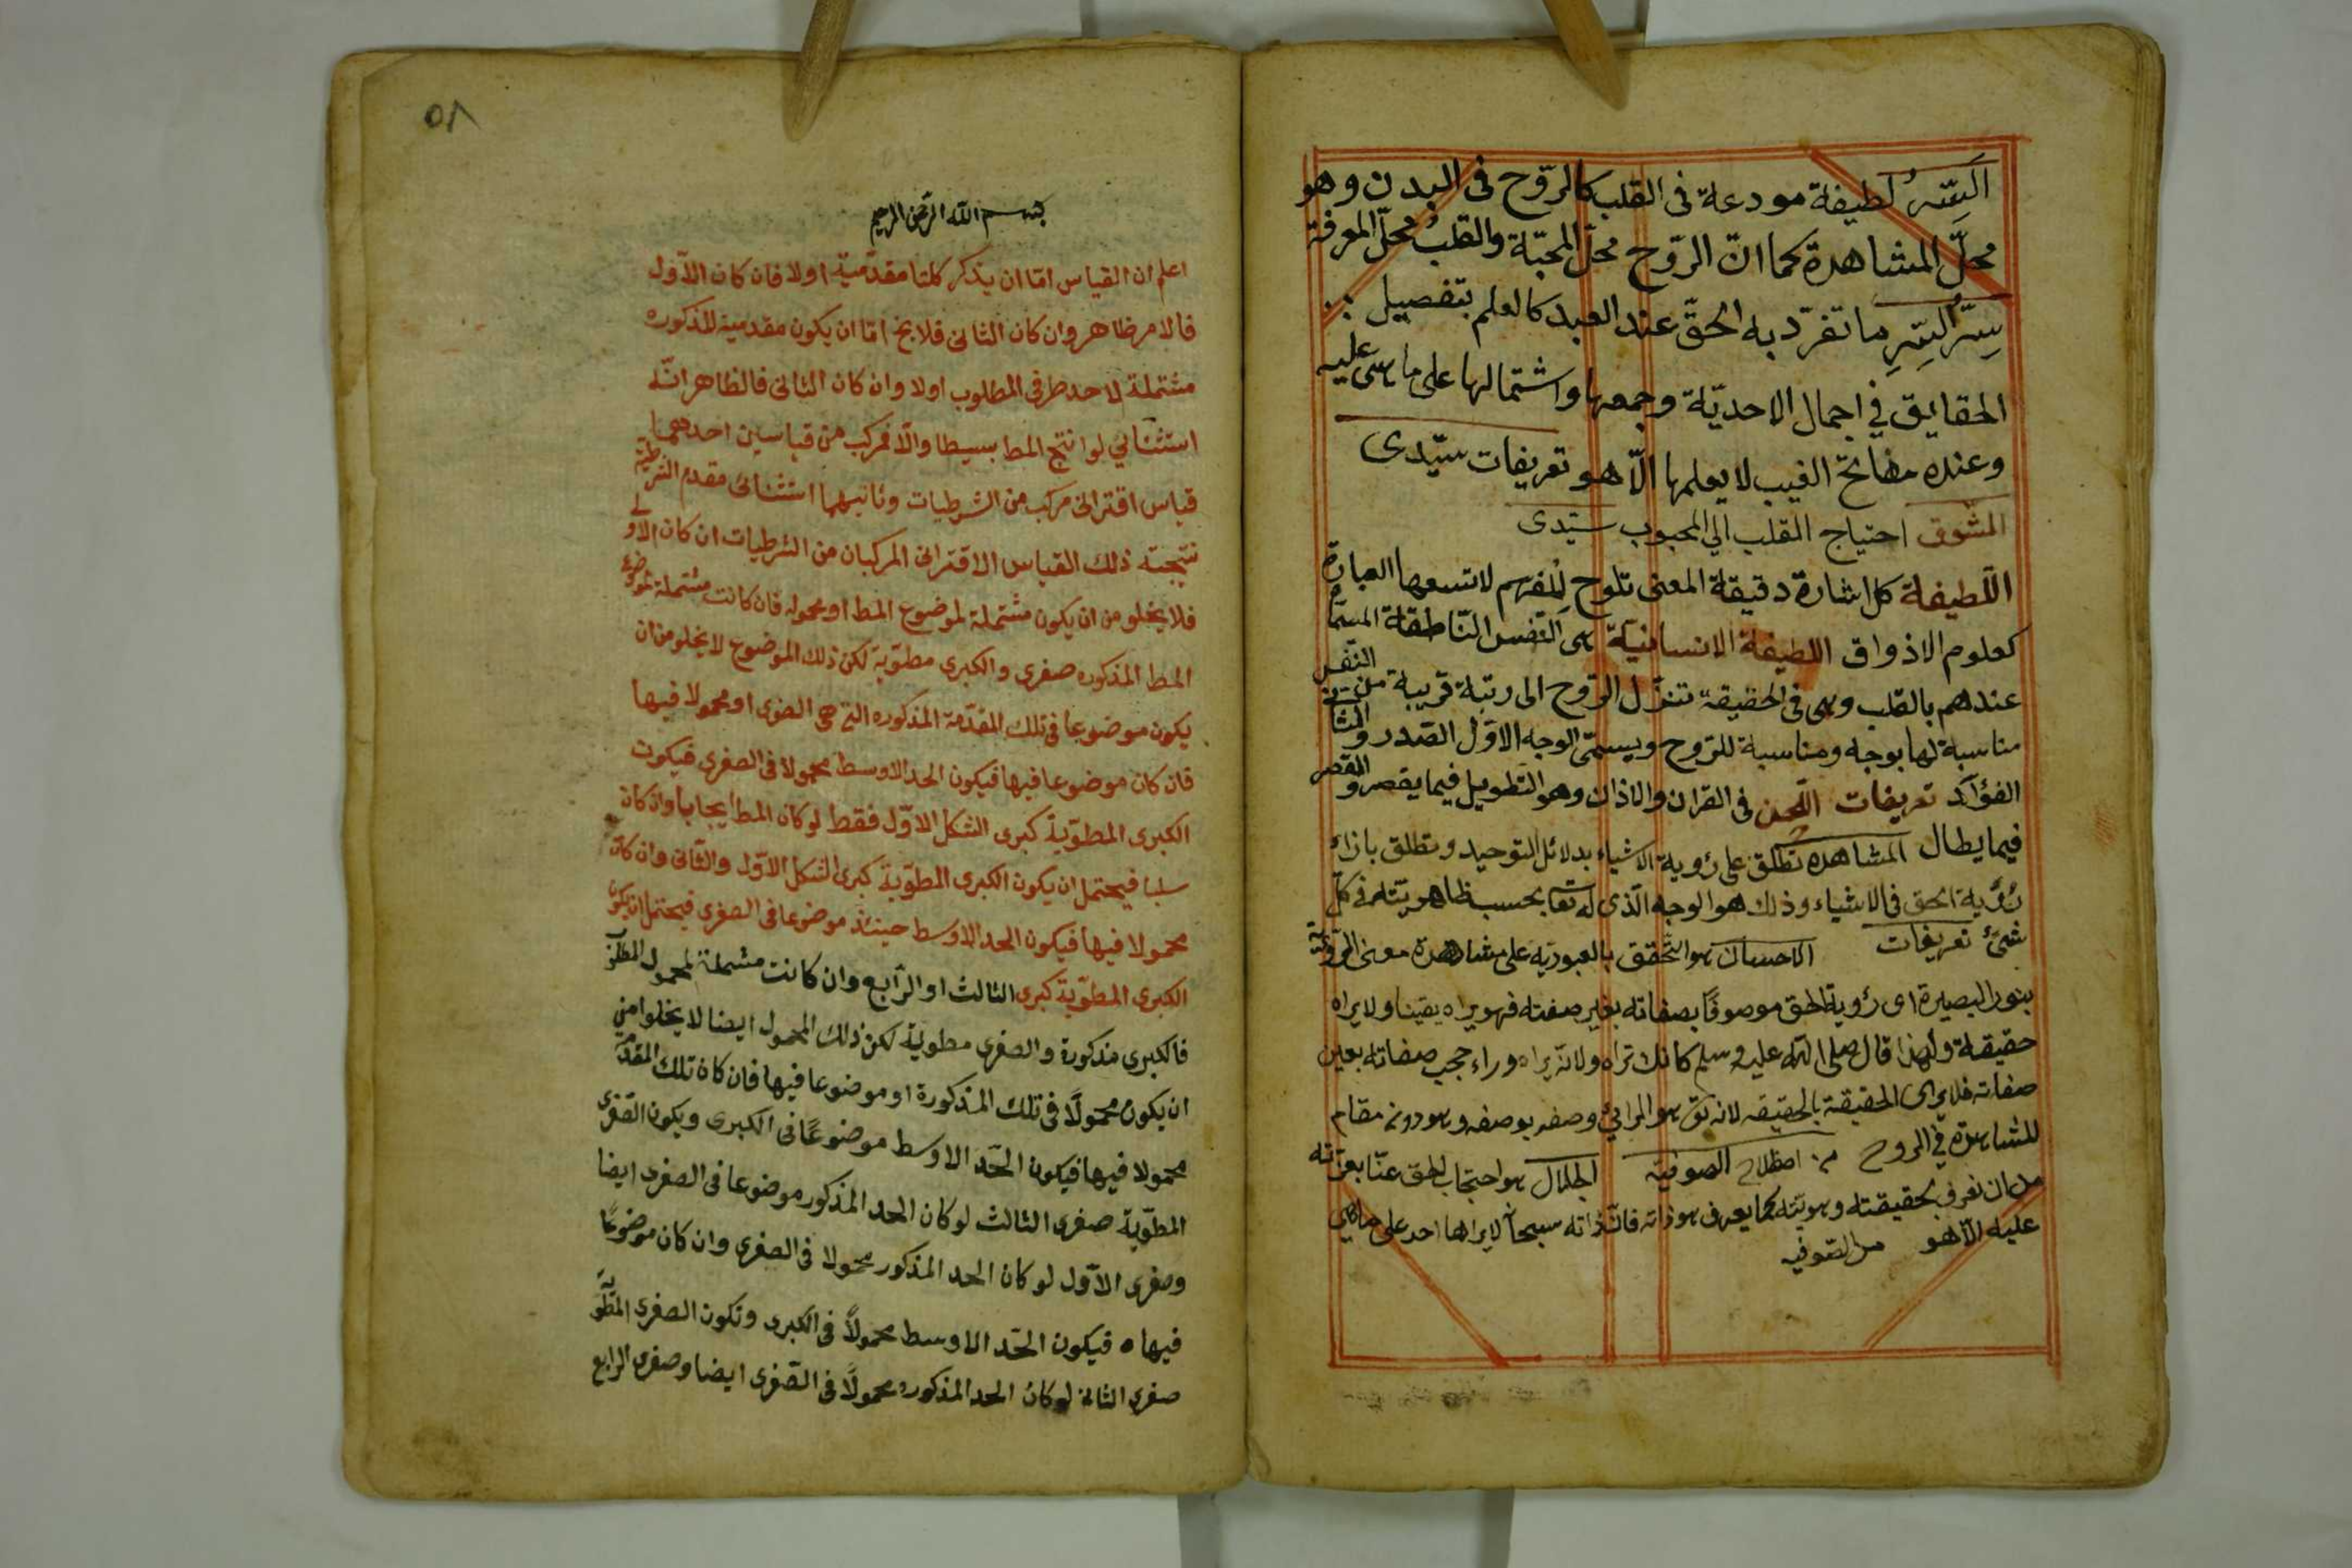 السّر لطيفة مودعة فى القلب كالرّوح فى البدن وهو
محلّ المشاهدة كما انّ الرّوح محلّ المحبّة والقلب محلّ المعرفة
سِرّ السِّرِ ما تفرّد به الحقّ عند العبد كالعلم بتفصيل
الحقايق في اجمال الاحديّة وجمعها واشتمالها على ما هى عليه
وعنده مفاتح الغيب لا يعلمها الّا هو تعريفات سيّدى
الشوق احتياج القلب الي المحبوب سيّدى
اللّطيفة كل اشارة دقيقة المعنى تلوح للفهم لا تسعها العبارة
كعلوم الاذواق اللطيفة الانسانيّة هى النّفس النّاطقة المسمّاة
عندهم بالقلب وهى فى الحقيقة تنزّل الرّوح الى رتبة قريبة من النّفس
مناسبة لها بوجه ومناسبة للرّوح ويسمّى الوجه الاوّل الصّدر والثانى
الفؤاد تعريفات اللّحن فى القران والاذان وهو التّطويل فيما يقصر والقصر
فيما يطال المشاهده تطلق على رؤية الاشياء بدلائل التوحيد وتطلق بازاء
رؤية الحق فى الاشياء وذلك هو الوجه الّذى له تعا بحسب ظاهريّته فى كلّ
شئ تعريفات الاحسان هو التّحقق بالعبوديّة على مشاهدة معنى الرّبوبيّة
بنور البصيرة اى رؤية الحق موصوفًا بصفاته بغير صفته فهو يراه يقينا ولا يراه
حقيقة ولهذا قال صلى الله عليه وسلم كانك تراه ولانه يراه وراء حجب صفاته بعين
صفاته فلا يرى الحقيقة بالحقيقه لانه تع هو الرائي وصفه بوصفه وهو دونه مقام
المشاهدة في الروح من اصطلاح الصوفيّه الجلال هو احتجاب الحق عنّا بعزّته
من ان نعرفه بحقيقته وهويّته كما يعرف هو ذاته فان ذاته سبحانه لا يراها احد على ما هى
عليه الّا هو من الصّوفيه
٥٨
بسم الله الرّحمن الرحيم
اعلم ان القياس امّا ان يذكر كلتا مقدّميته اولا فان كان الاوّل
فالامر ظاهر وان كان الثانى فلا يخ امّا ان يكون مقدميته المذكوره
مشتملة لاحد طرفى المطلوب اولا وان كان الثانى فالظاهر انّه
استثنائي لو انتج المط بسيطا والّا فمركب من قياسين احدهما
قياس اقترانى مركب من الشرطيات وثانيهما استثنائى مقدم الشرطية
نتيجته ذلك القياس الاقترانى المركبان من الشرطيات ان كان الاولى
فلا يخلو من ان يكون مشتملة لموضوع المط او محموله فان كانت مشتملة لموضوع
المط المذكوره صغرى والكبرى مطويّة لكن ذلك الموضوع لا يخلو من ان
يكون موضوعا فى تلك المقدّمة المذكوره التى هى الصغرى او محمولا فيها
فان كان موضوعا فيها فيكون الحد الاوسط محمولا فى الصغرى فيكون
الكبرى المطويّة كبرى الشكل الاوّل فقط لو كان المط ايجابا وان كان
سلبا فيحتمل ان يكون الكبرى المطويّة كبرى الشكل الاوّل والثّانى وان كان
محمولا فيها فيكون الحد الاوسط حينئذ موضوعا فى الصغرى فيحتمل ان يكون
الكبرى المطويّة كبرى الثالث او الرّابع وان كانت مشتملة لمحمول المط
فالكبرى مذكورة والصغرى مطوية لكن ذلك المحمول ايضا لا يخلو امن
ان يكون محمولًا فى تلك المذكورة او موضوعا فيها فان كان تلك المقدّمة
محمولا فيها فيكون الحّد الاوسط موضوعًا فى الكبرى ويكون الصّغرى
المطويّة صغرى الثالث لو كان الحد المذكور موضوعا فى الصغرى ايضا
وصغرى الاوّل لو كان الحد المذكور محمولا فى الصغرى وان كان موضوعًا
فيها ه فيكون الحّد الاوسط محمولًا فى الكبرى وتكون الصغرى المطويّة
صغرى الثانى لو كان الحد المذكوره محمولًا فى الصّغرى ايضا وصغرى الرابع